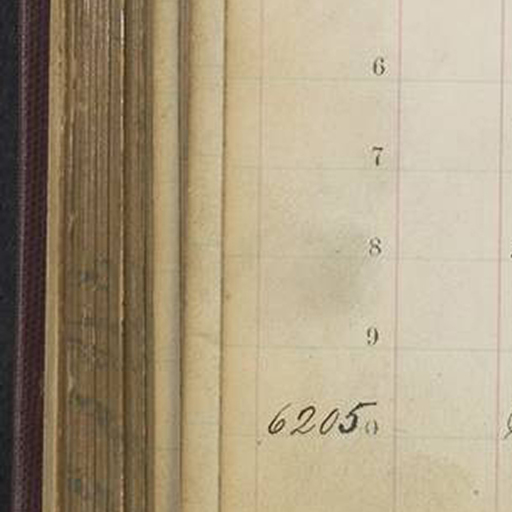 6
7
8
9
62050